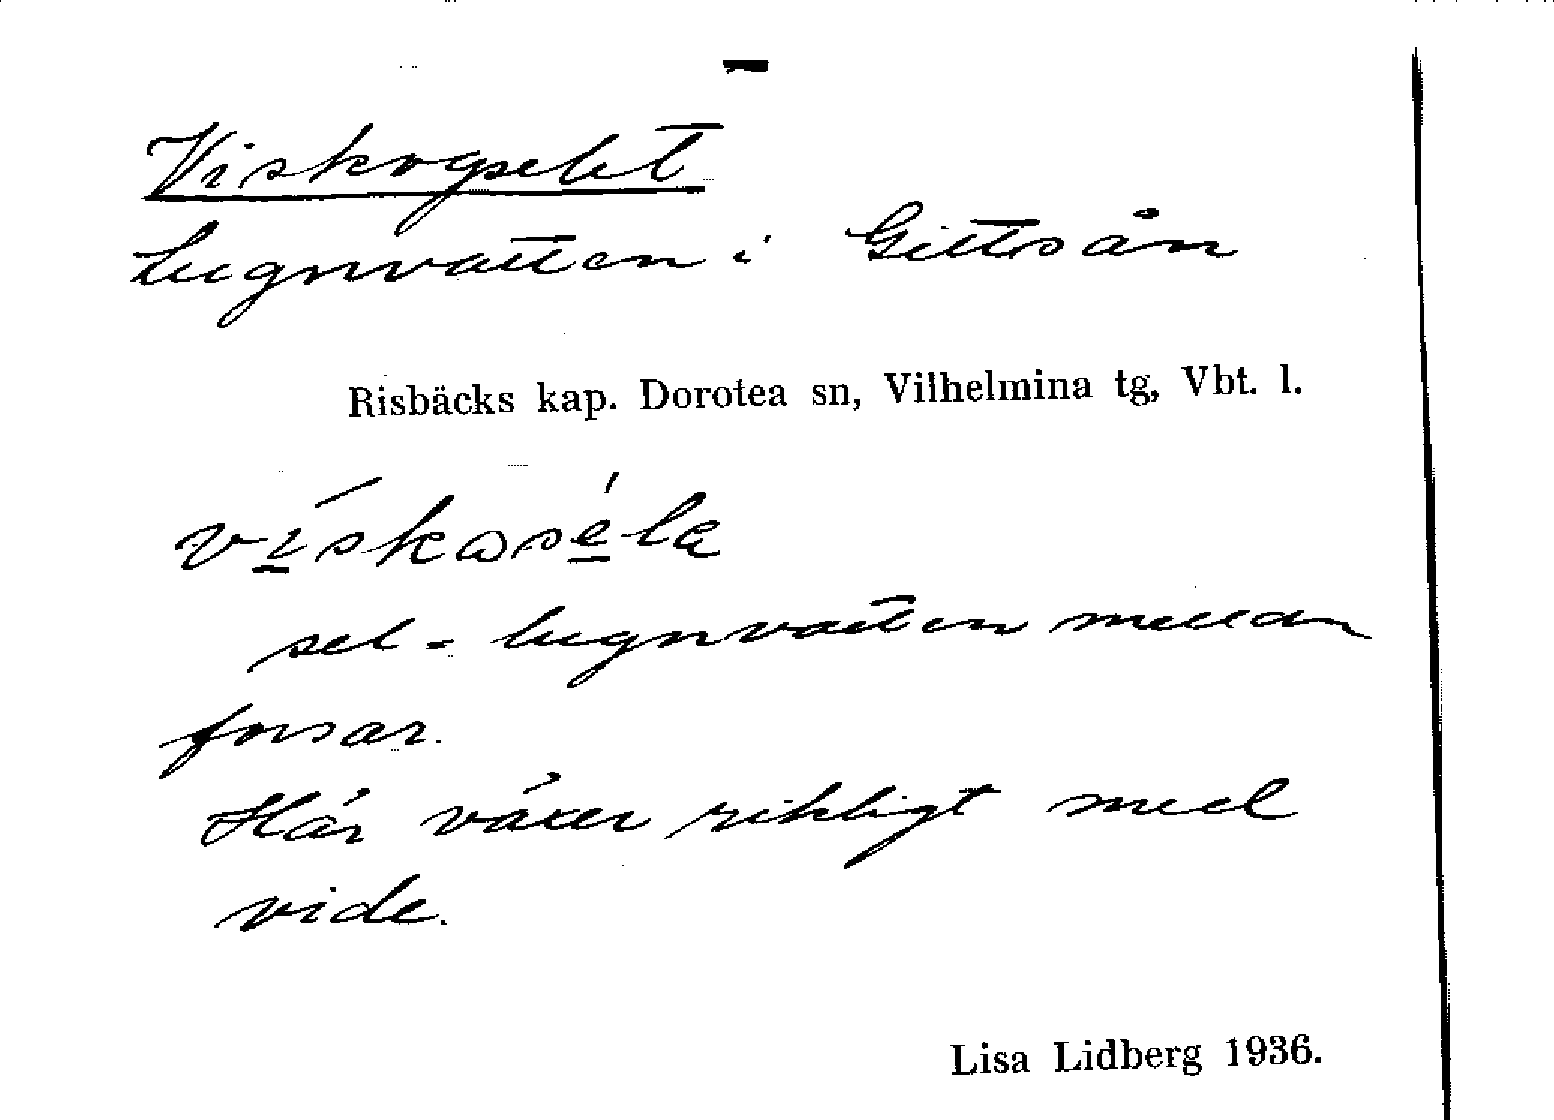 Viskogselet
Lugnvatten i Gittsån
Risbäcks kap. Dorotea sn, Vilhelmina tg, Vbt. l.
sel = lugnvatten mellan
forsar.
Här växer rikligt med
vide.
Lisa Lidberg 1936.